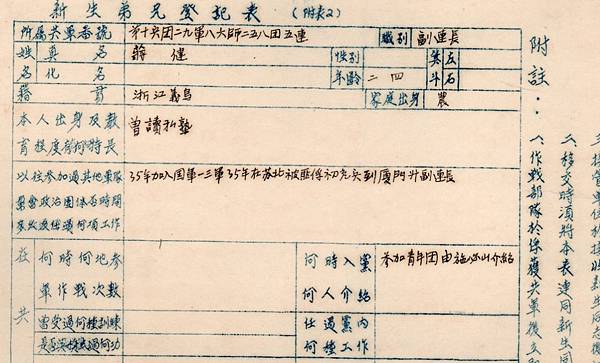 新生弟兄登記表 (附表2)
所屬共軍番號 第十兵团二九軍八六師二五八团五連 職別 副連長
姓名 真名 蔣 性別 左
化名 年齡 二四 斗 右
籍貫 浙江義烏 家庭出身 農
本人出身及教育程度有何特長 曾讀私塾
以往參加過其他軍隊
黨會政治團体名時間
35年加入国軍一三軍35年在苏北被匪俘初充兵到廈門升副連長
在共
何時何地參
軍作戰次數
何時入黨
何人介紹
參加青年团由施 山介紹
曾受過何種訓練
任過黨內
何種工作
附註：
一、作戰部隊於俘獲共軍後立
二、移交時須將本表連同新生同